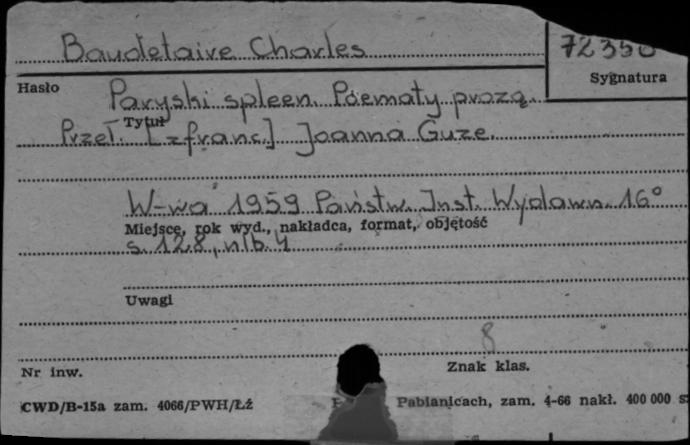 Baudelaire Charles
72350
Sygnatura
Hasło
Paryski spleen. Poematy prozą.
Tytuł
Przeł. [z franc.] Joanna Guze.
W-wa 1959 Państw. Inst. Wydawn. 16°
Miejsce, rok wyd., nakładca, format, objętość
s. 128, nlb. 4
Uwagi
8
Nr inw.
Znak klas.
CWD/B-15a zam. 4066/PWH/Łź
Pabianicach, zam. 4-66 nakł. 400 000 s